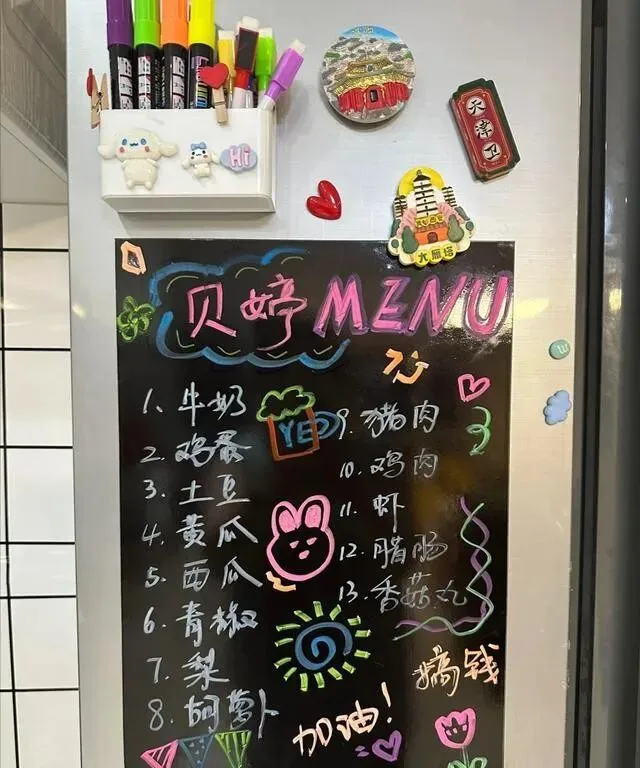 Hi
天津卫
大雁塔
贝婷MENU
1、牛奶
2、鸡蛋
3、土豆
4、黄瓜
5、西瓜
6、青椒
7、梨
8、胡萝卜
YEP
9、猪肉
10、鸡肉
11、虾
12、腊肠
13、香菇丸
搞钱
加油！